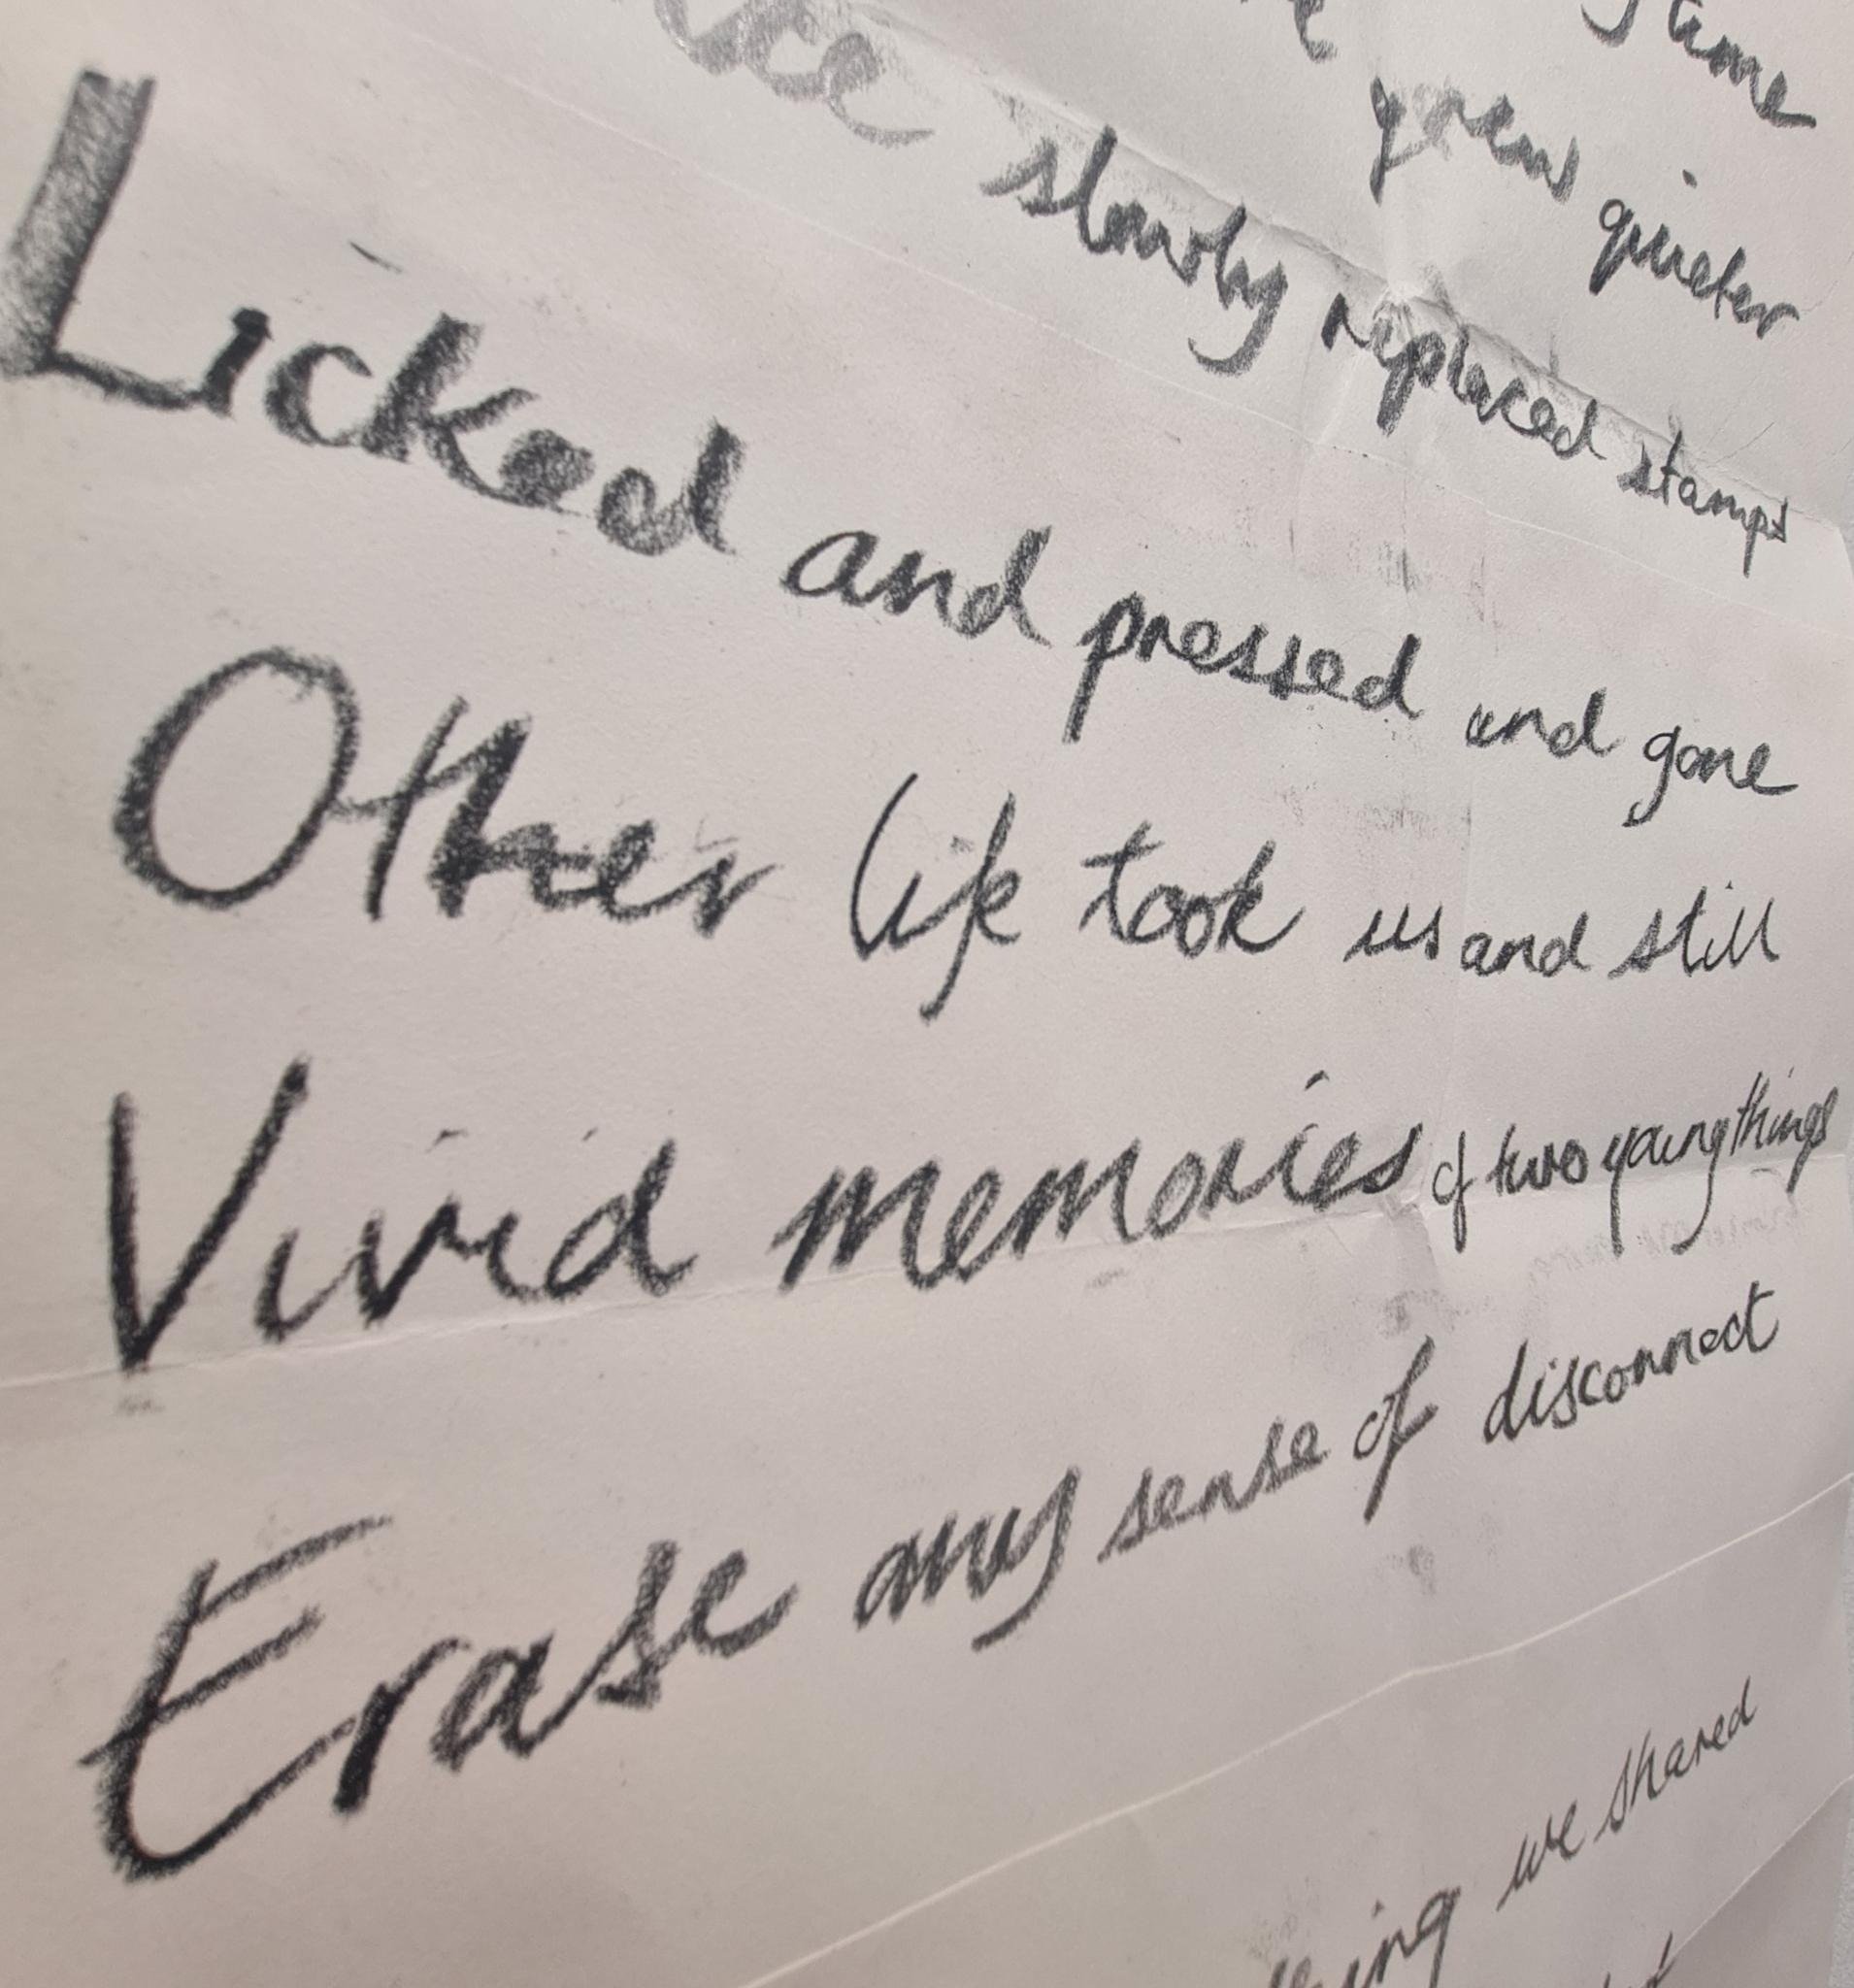 time
grew quieter
slowly replaced stamps
Licked and pressed and gone
Other life took us and still
Vivid memories of two young things
Erase any sense of disconnect
we shared